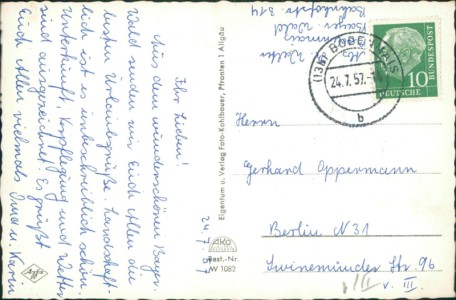 24.7.57
Ihr Lieben!
Aus dem wunderschönen Bayer.
Wald senden wir Euch allen die
besten Urlaubsgrüße. Landschaft-
lich ist es unbeschreiblich schön.
Unterkunft, Verpflegung und Wetter
sind ausgezeichnet. Es grüßt
Euch allen vielmals
u. Karin
Agfa
Eigentum u. Verlag Foto-Kohlbauer, Pfronten i. Allgäu
Best.-Nr.
W 1082
Bayer. Wald
Bahnhofstr. 314
(13b) BODENMAIS
24.7.57.-
b
DEUTSCHE
BUNDESPOST
10
Herrn
Gerhard Oppermann
Berlin N 31
Swinemünder Str. 96
v. III.